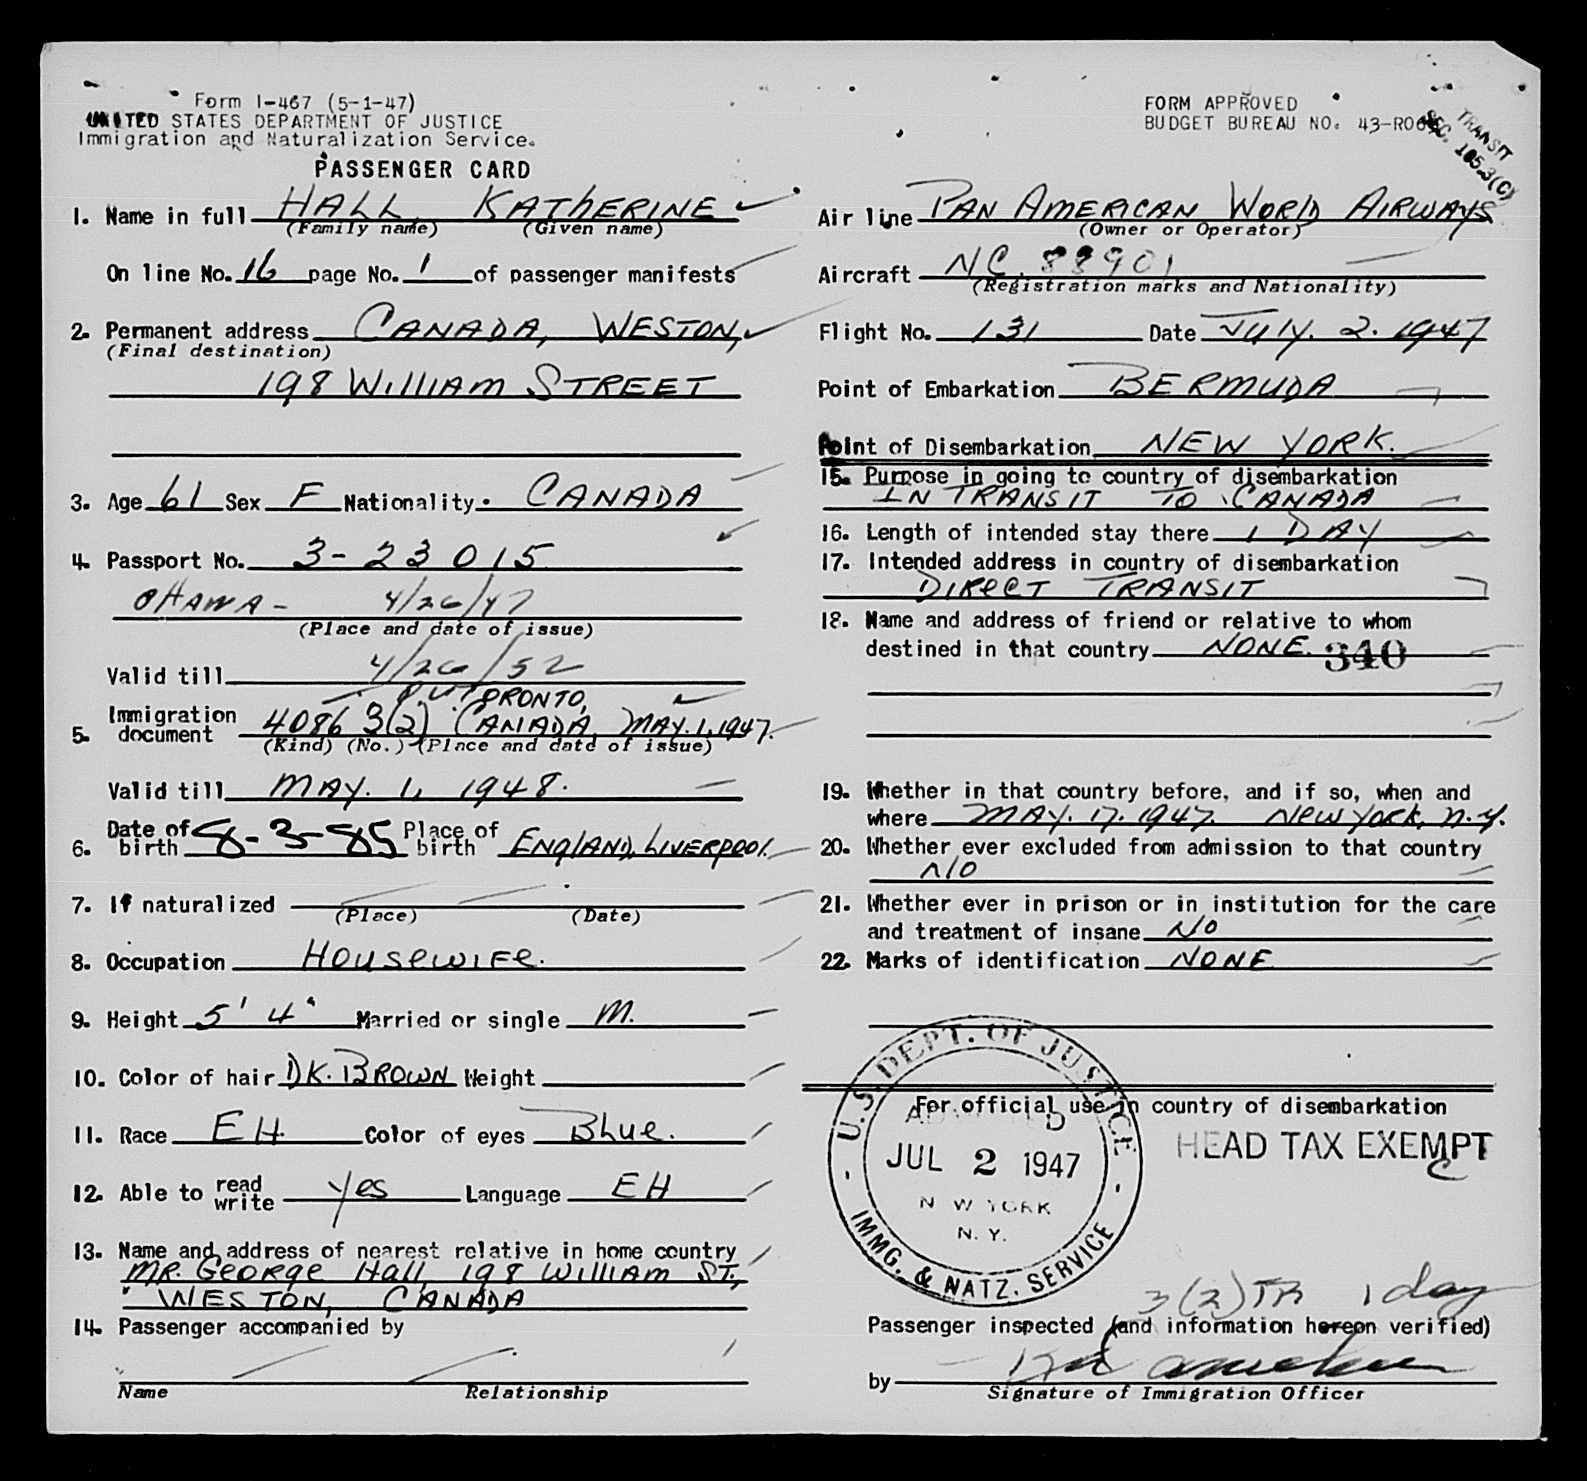 Form I-467 (5-1-47)
UNITED STATES DEPARTMENT OF JUSTICE
Immigration and Naturalization Service.
PASSENGER CARD
1. Name in full HALL, KATHERINE
(Family name) (Given name)
On line No. 16 page No. 1 of passenger manifests
2. Permanent address CANADA, WESTON,
(Final destination)
198 WILLIAM STREET
3. Age 61 Sex F Nationality. CANADA
4. Passport No. 3-23015
OTTAWA - 4/26/47
(Place and date of issue)
Valid till 4/26/52
TORONTO,
5. Immigration document 4086 3(2) CANADA, MAY. 1, 1947.
(Kind) (No.) (Place and date of issue)
Valid till MAY. 1, 1948.
6. Date of birth 8-3-85 Place of birth ENGLAND, LIVERPOOL.
7. If naturalized
(Place) (Date)
8. Occupation HOUSEWIFE.
9. Height 5' 4" Married or single M.
10. Color of hair DK. BROWN Weight
11. Race EH. Color of eyes BLUE.
12. Able to read write yes Language EH
13. Name and address of nearest relative in home country
MR. GEORGE HALL, 198 WILLIAM ST.,
WESTON, CANADA
14. Passenger accompanied by
Name Relationship
FORM APPROVED
BUDGET BUREAU NO. 43-R06
TRANSIT
SEC. 105.3(C)
Air line PAN AMERICAN WORLD AIRWAYS
(Owner or Operator)
Aircraft NC. 88901
(Registration marks and Nationality)
Flight No. 131 Date JULY. 2. 1947
Point of Embarkation BERMUDA
Point of Disembarkation NEW YORK.
15. Purpose in going to country of disembarkation
IN TRANSIT TO CANADA
16. Length of intended stay there 1 DAY
17. Intended address in country of disembarkation
DIRECT TRANSIT
18. Name and address of friend or relative to whom
destined in that country NONE. 340
19. Whether in that country before, and if so, when and
where MAY. 17. 1947. NEW YORK, N.Y.
20. Whether ever excluded from admission to that country
NO
21. Whether ever in prison or in institution for the care
and treatment of insane NO
22. Marks of identification NONE
For official use in country of disembarkation
U.S. DEPT. OF JUSTICE
ADMITTED
JUL 2 1947
NEW YORK
N.Y.
IMMG. & NATZ. SERVICE
HEAD TAX EXEMPT
C
3(2) TR 1 day
Passenger inspected (and information hereon verified)
by
Signature of Immigration Officer